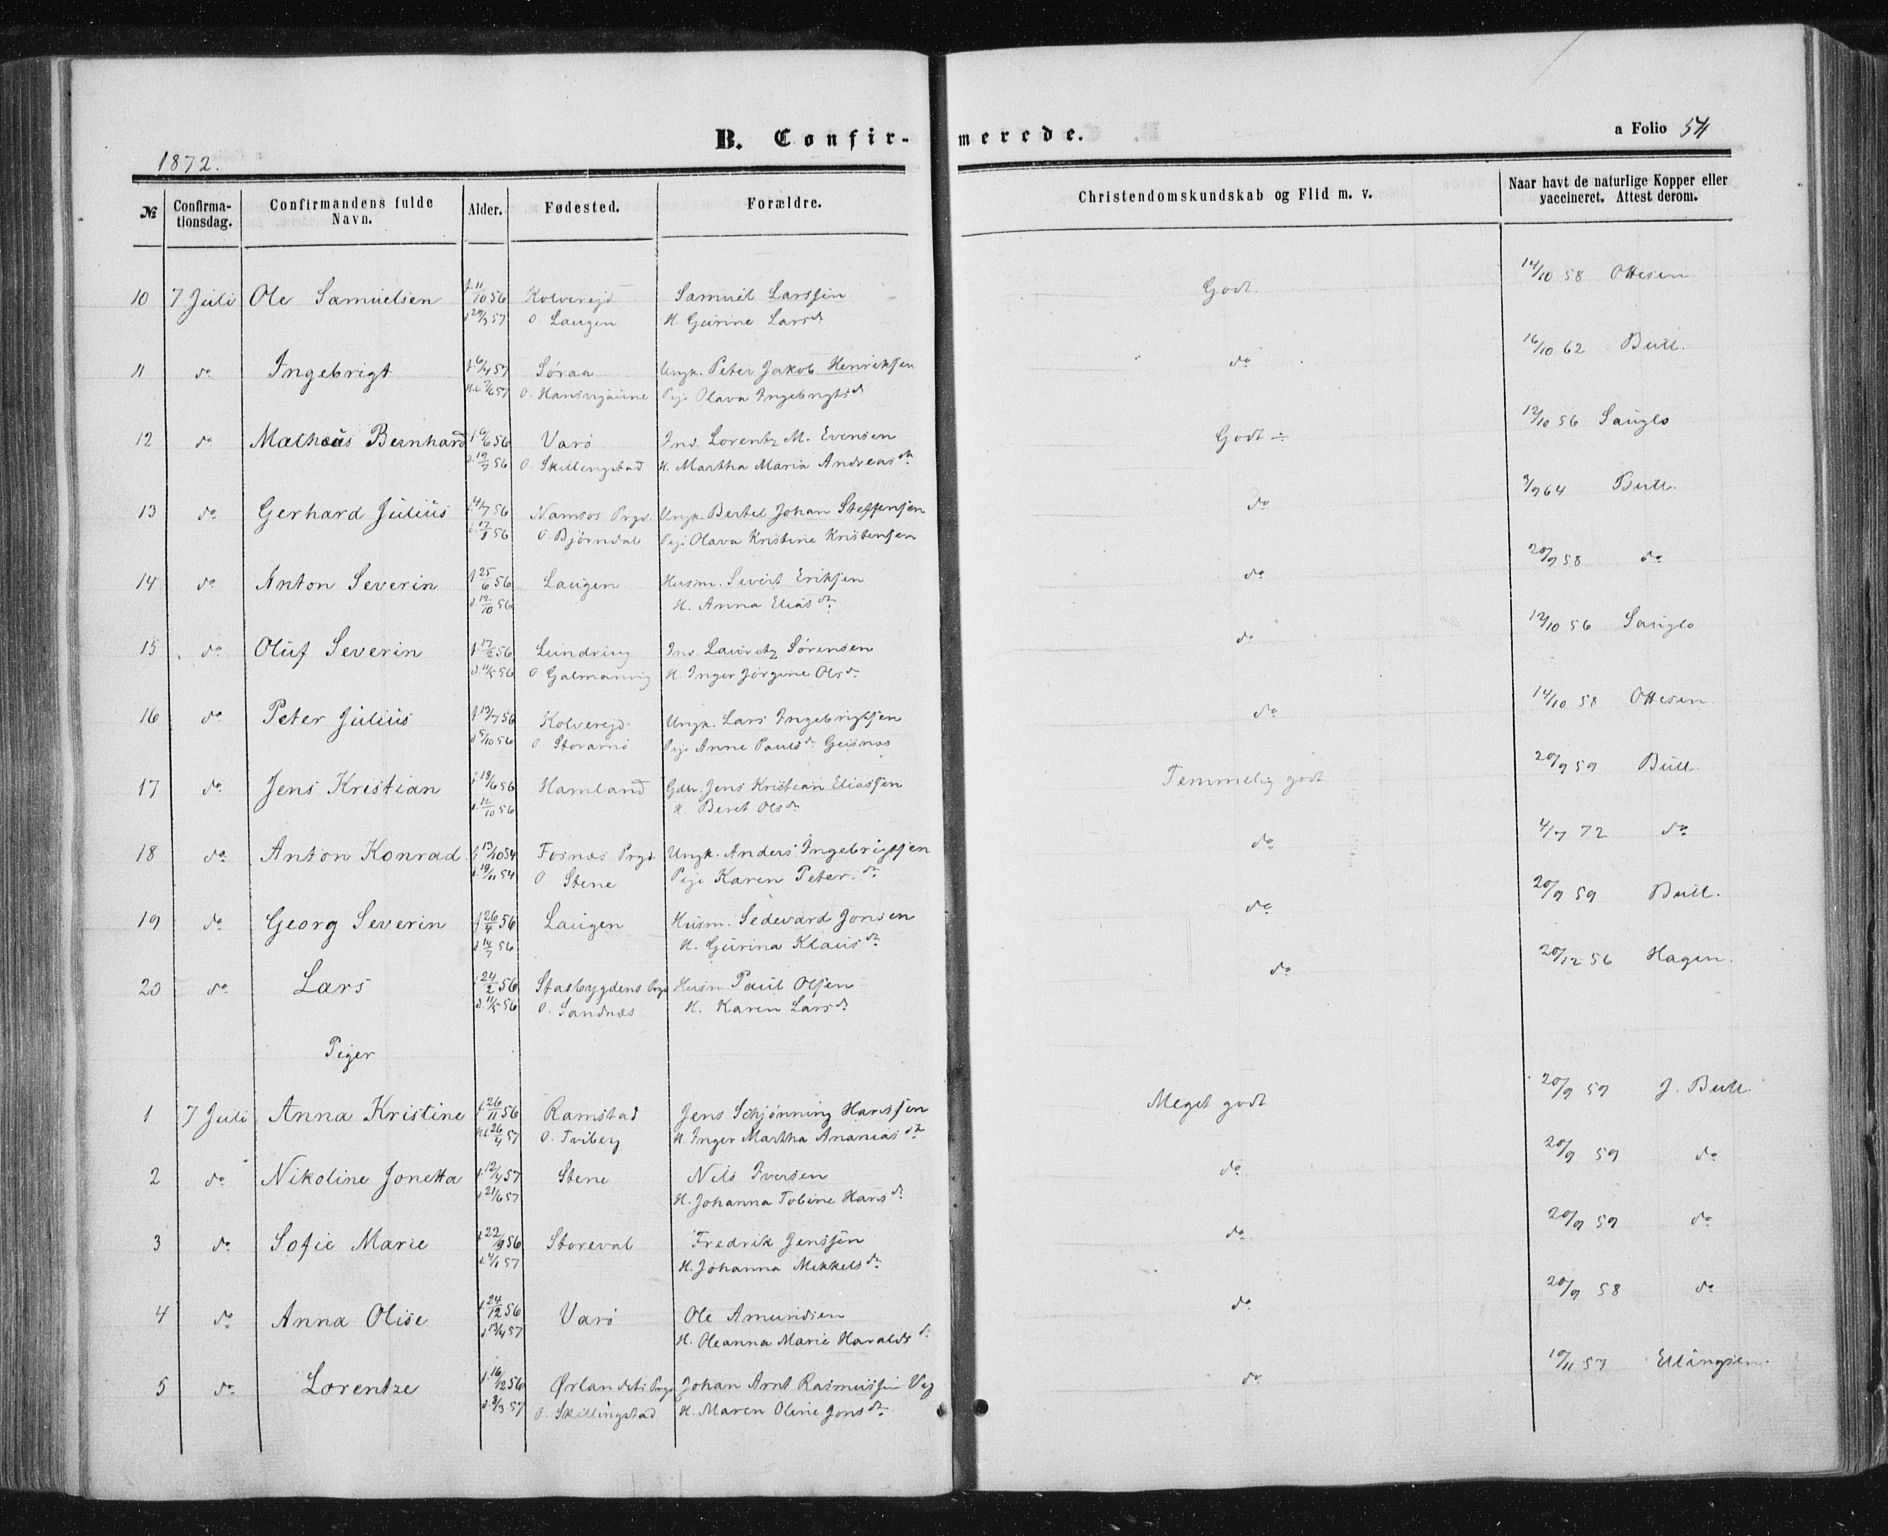 1872.
B. Confir-
merede.
a Folio 54
№ Confirma-tionsdag. Confirmandens fulde Navn. Alder. Fødested. Forældre. Christendomskundskab og Flid m. v. Naar havt de naturlige Kopper eller vaccineret. Attest derom.
10 7 Juli Ole Samuelsen f 11/10 56 Kolvereid Samuel Larssen Godt. 14/10 58 Ottesen
O. Laugen H. Gurine Larsd.
11 do Ingebrigt f 6/4 57 Søraa Ungk. Peter Jakob Henriksen do 16/10 62 Bull.
O. Pige Olava Ingebrigtsd.
12 do Mathæus Bernhard f 6/6 56 Varø Ins. Lorentz M. Evensen Godt ÷ 12/10 56 Sauglo
d. 19/7 56 O. Skillingstad H. Martha Maria Andreasd.
13 do Gerhard Julius f 4/7 56 Namsos Prgd. Ungk. Bertel Johan Steffensen do 9/9 64 Bull.
d. 17/8 56 O. Bjørndal Pige Olava Kristine Kristensen
14 do Anton Severin f 25/6 56 Laugen Husm. Sivert Eriksen do 20/9 58 do
d. 12/10 56 H. Anna Eliasd.
15 do Oluf Severin f 17/2 56 Lundring Ins. Lauretz Sørensen do 12/10 56 Sauglo
d. 11/5 56 O. Galmanvig H. Inger Jørgine Olsd.
16 do Peter Julius f 13/7 56 Kolvereid Ungk. Lars Ingebrigtsen do 14/10 58 Ottesen
d 5/10 56 O. Pige Anne Paulsd. Geisnæs
17 do Jens Kristian f 18/6 56 Hamland Gdbr. Jens Kristian Eliassen Temmelig godt 20/9 59 Bull
d. 12/10 56 H. Beret Olsd.
18 do Anton Konrad f 13/10 54 Fosnæs Prgd Ungk. Anders Ingebrigtsen do 4/7 72 do
d. 19/11 54 O. Stene Pige Karen Peter.d.
19 do Georg Severin f 26/4 56 Laugen Husm. Sedevard Jonsen do 20/9 59 Bull.
d 14/7 56 H. Gurina Klausd.
20 do Lars f 24/2 56 Stadsbygdens Prgd Husm. Paul Olsen do 20/12 56 Hagen.
d. 11/5 56 O. Sandnæs H. Karen Larsd.
Piger
1 7 Juli Anna Kristine f 26/11 56 Ramstad Jens Schjønning Hanssen Meget godt 20/9 59 J. Bull.
26/4 57 O. Tviberg H. Inger Martha Ananiasd.
2 do Nikoline Jonetta f. 12/4 57 Stene Nils Iversen do 20/9 59 do
d 21/6 57 H. Johanna Tobine Hansd.
3 do Sofie Marie f 22/9 56 Storeval Fredrik Jenssen do 20/9 59 do
57 H. Johanna Mikkelsd.
4 do Anna Olise f. 24/12 56 Varø Ole Amundsen do 20/9 58 do
d 13/4 57 H. Oleanna Marie Haraldsd.
5 do Lorentze f. 16/12 56 Ørlandets Prgd Johan Arnt Rasmussen Vig do 10/11 57 Ellingsen.
d. 8/3 57 O. Skillingstad H. Maren Oline Jonsd.